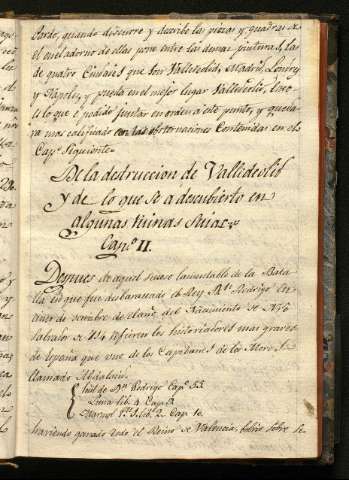 Pardo, quando discurre y describe las piezas y quadras de
el en el adorno de ellas pone entre las demas pinturas, las
de quatro Ciudades que son Valledolid, Madrid, Londres
y Napoles, y pueda en el mejor lugar Valledolid, esto
es lo que e podido juntar en orden a este punto, y queda
ra mas calificado con las observaciones Contenidas en el
Capº Siguiente.
De la destruccion de Valledolid
y de lo que se a descubierto en
algunas ruinas Suias
Capº II.
Despues de aquel suceso lamentable de la Bata
lla en que fue desbaratado el Rey Dn Rodrigo en
once de de el año del Nacimiento de Nro
Salvador de 714 refieren los historiadores mas graves
de España que uno de los Capitanes de los Moros
llamado Abdalasis
de Dn Rodrigo Capº 53.
lib. 4 Cap. 3
Marmol lib. 2. Cap. 10.
haviendo ganado todo el Reino de Valencia, bolvio sobre